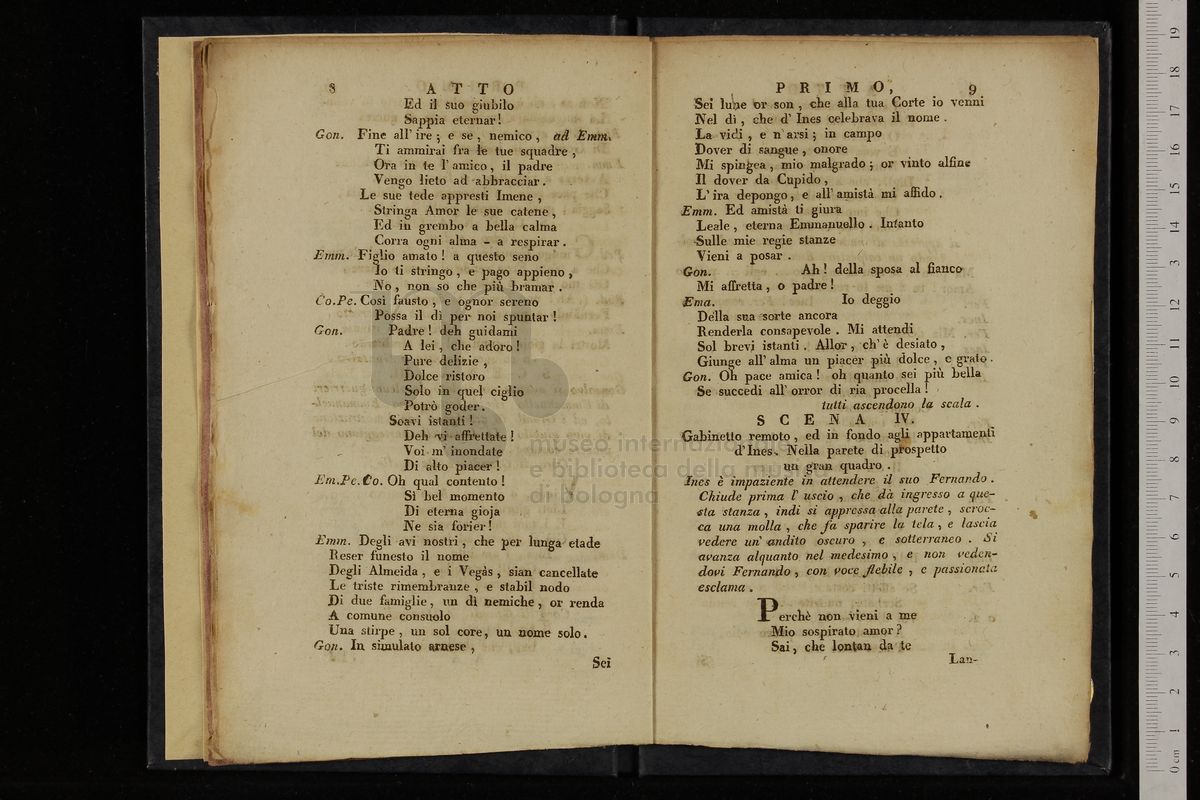 8 ATTO
Ed il suo giubilo
Sappia eternar!
Gon. Fine all' ire; e se, nemico, ad Emm.
Ti ammirai fra le tue squadre,
Ora in te l' amico, il padre
Vengo lieto ad abbracciar.
Le sue tede appresti Imene,
Stringa Amor le sue catene,
Ed in grembo a bella calma
Corra ogni alma - a respirar.
Emm. Figlio amato! a questo seno
Io ti stringo, e pago appieno,
No, non so che più bramar.
Co.Pe. Così fausto, e ognor sereno
Possa il dì per noi spuntar!
Gon. Padre! deh guidami
A lei, che adoro!
Pure delizie,
Dolce ristoro
Solo in quel ciglio
Potrò goder.
Soavi istanti!
Deh vi affrettate!
Voi m' inondate
Di alto piacer!
Em.Pe.Co. Oh qual contento!
Sì bel momento
Di eterna gioja
Ne sia forier!
Emm. Degli avi nostri, che per lunga etade
Reser funesto il nome
Degli Almeida, e i Vegàs, sian cancellate
Le triste rimembranze, e stabil nodo
Di due famiglie, un dì nemiche, or renda
A comune consuolo
Una stirpe, un sol core, un nome solo.
Gon. In simulato arnese,
Sei
PRIMO, 9
Sei lune or son, che alla tua Corte io venni
Nel dì, che d' Ines celebrava il nome.
La vidi, e n' arsi; in campo
Dover di sangue, onore
Mi spingea, mio malgrado; or vinto alfine
Il dover da Cupido,
L' ira depongo, e all' amistà mi affido.
Emm. Ed amistà ti giura
Leale, eterna Emmanuello. Intanto
Sulle mie regie stanze
Vieni a posar.
Gon. Ah! della sposa al fianco
Mi affretta, o padre!
Ema. Io deggio
Della sua sorte ancora
Renderla consapevole. Mi attendi
Sol brevi istanti. Allor, ch' è desiato,
Giunge all' alma un piacer più dolce, e grato.
Gon. Oh pace amica! oh quanto sei più bella
Se succedi all' orror di ria procella!
tutti ascendono la scala.
SCENA IV.
Gabinetto remoto, ed in fondo agli appartamenti
d' Ines. Nella parete di prospetto
un gran quadro.
Ines è impaziente in attendere il suo Fernando.
Chiude prima l' uscio, che dà ingresso a que-
sta stanza, indi si appressa alla parete, scroc-
ca una molla, che fa sparire la tela, e lascia
vedere un' andito oscuro, e sotterraneo. Si
avanza alquanto nel medesimo, e non veden-
dovi Fernando, con voce flebile, e passionata
esclama.
Perchè non vieni a me
Mio sospirato amor?
Sai, che lontan da te
Lan-
museo internazionale
e biblioteca della musica
di bologna
0 cm 1 2 3 4 5 6 7 8 9 10 11 12 13 14 15 16 17 18 19